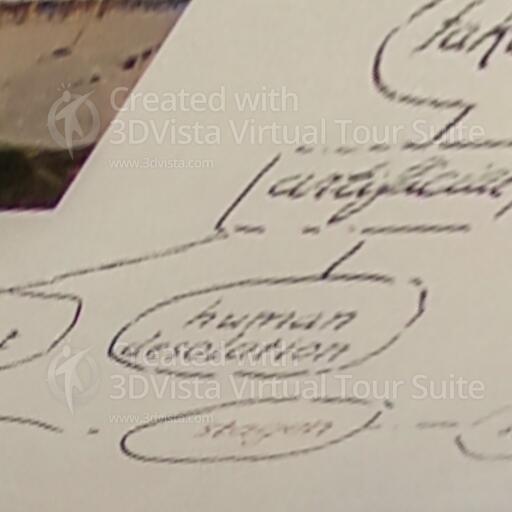 Created with
3DVista Virtual Tour Suite
www.3dvista.com
artificial
human
desolation
Created with
3DVista Virtual Tour Suite
www.3dvista.com